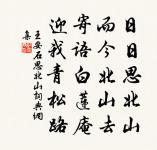 日日思北山
而今北山去
寄語白蓮庵
迎我青松路
王安石思北山詞典網
集